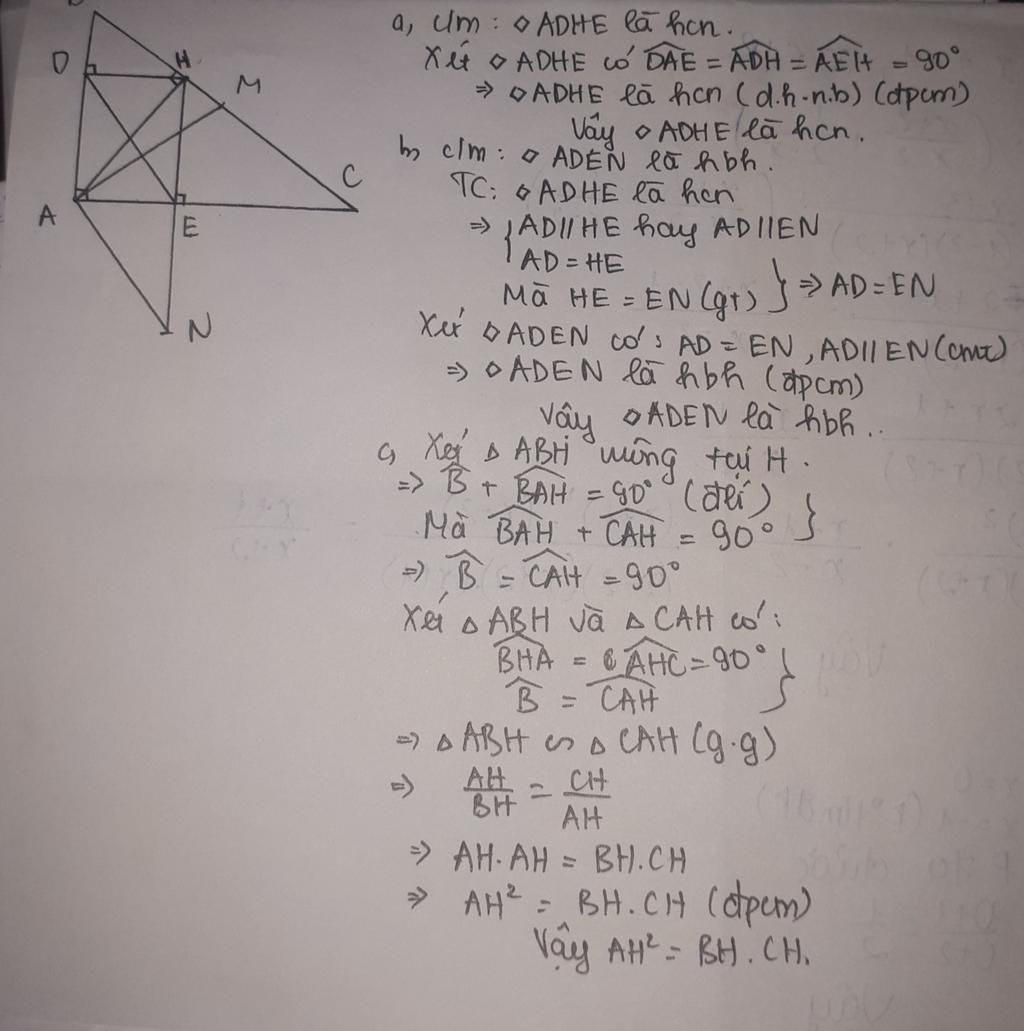 D
H
M
C
A
E
N
a, c/m: ◇ ADHE là hcn.
Xét ◇ ADHE có \widehat{DAE} = \widehat{ADH} = \widehat{AEH} = 90°
⇒ ◇ ADHE là hcn (d.h.n.b) (đpcm)
Vậy ◇ ADHE là hcn.
b, c/m: ◇ ADEN là hbh.
TC: ◇ ADHE là hcn
⇒ { AD // HE hay AD // EN
AD = HE
Mà HE = EN (gt) } ⇒ AD = EN
Xét ◇ ADEN có: AD = EN, AD // EN (cmt)
⇒ ◇ ADEN là hbh (đpcm)
Vậy ◇ ADEN là hbh..
c, Xét △ ABH vuông tại H.
⇒ \widehat{B} + \widehat{BAH} = 90° (đlí)
Mà \widehat{BAH} + \widehat{CAH} = 90° }
⇒ \widehat{B} = \widehat{CAH} = 90°
Xét △ ABH và △ CAH có:
\widehat{BHA} = \widehat{AHC} = 90° }
\widehat{B} = \widehat{CAH}
⇒ △ ABH ∽ △ CAH (g.g)
⇒ \frac{AH}{BH} = \frac{CH}{AH}
⇒ AH.AH = BH.CH
⇒ AH² = BH.CH (đpcm)
Vậy AH² = BH.CH.